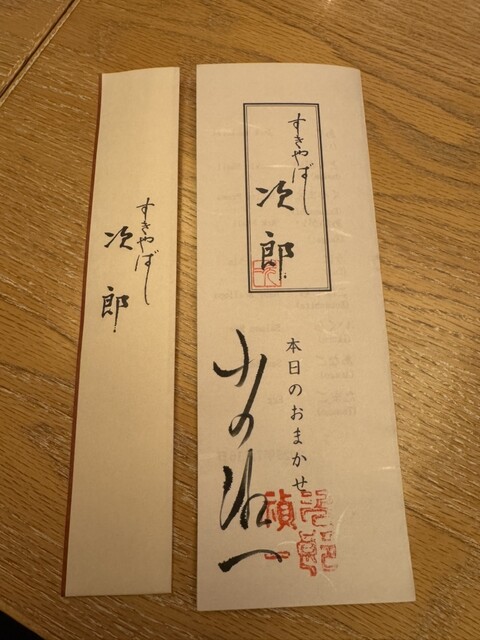 すきやばし
次郎
すきやばし
次郎
本日のおまかせ
小の禎一
禎一